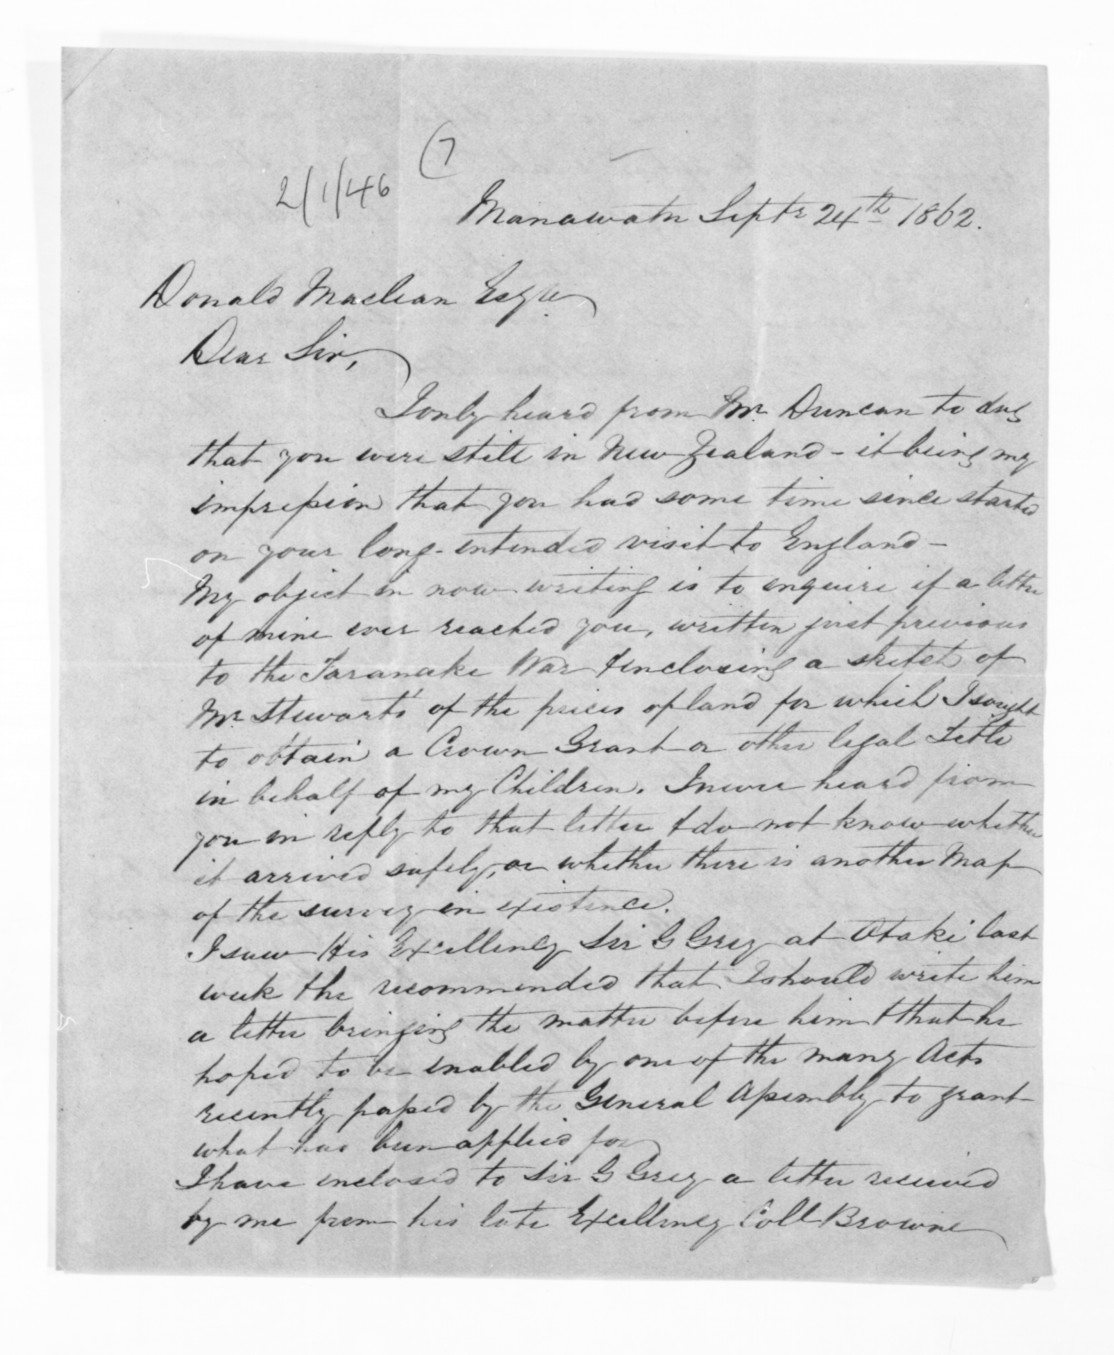 2/1/46
(7
Manawatu Septr 24th 1862.
Donald Maclean Esqre
Dear Sir,
I only heard from Mr. Duncan to day
that you were still in New Zealand - it being my
impression that you had some time since started
on your long-intended visit to England -
My object in now writing is to enquire if a letter
of mine ever reached you, written just previous
to the Taranaki War & enclosing a sketch of
Mr. Stewart's of the pieces of land for which I sought
to obtain a Crown Grant or other legal Title
in behalf of my Children. I never heard from
you in reply to that letter & do not know whether
it arrived safely, or whether there is another Map
of the survey in existence.
I saw His Excellency Sir G Grey at Otaki last
week & he recommended that I should write him
a letter bringing the matter before him & that he
hoped to be enabled by one of the many Acts
recently passed by the General Assembly to grant
what has been applied for
I have enclosed to Sir G Grey a letter received
by me from his late Excellency Coll Browne